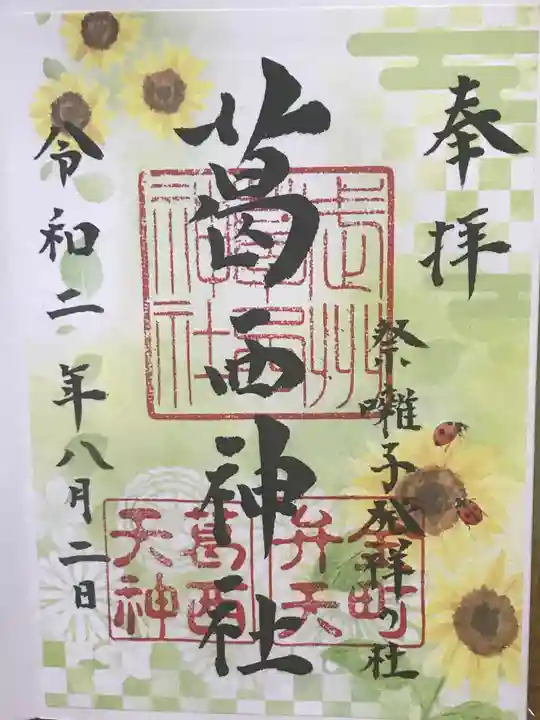 奉拝
祭囃子発祥の社
葛西神社
令和二年八月二日
武州
葛西
神社
弁天
葛西
天神